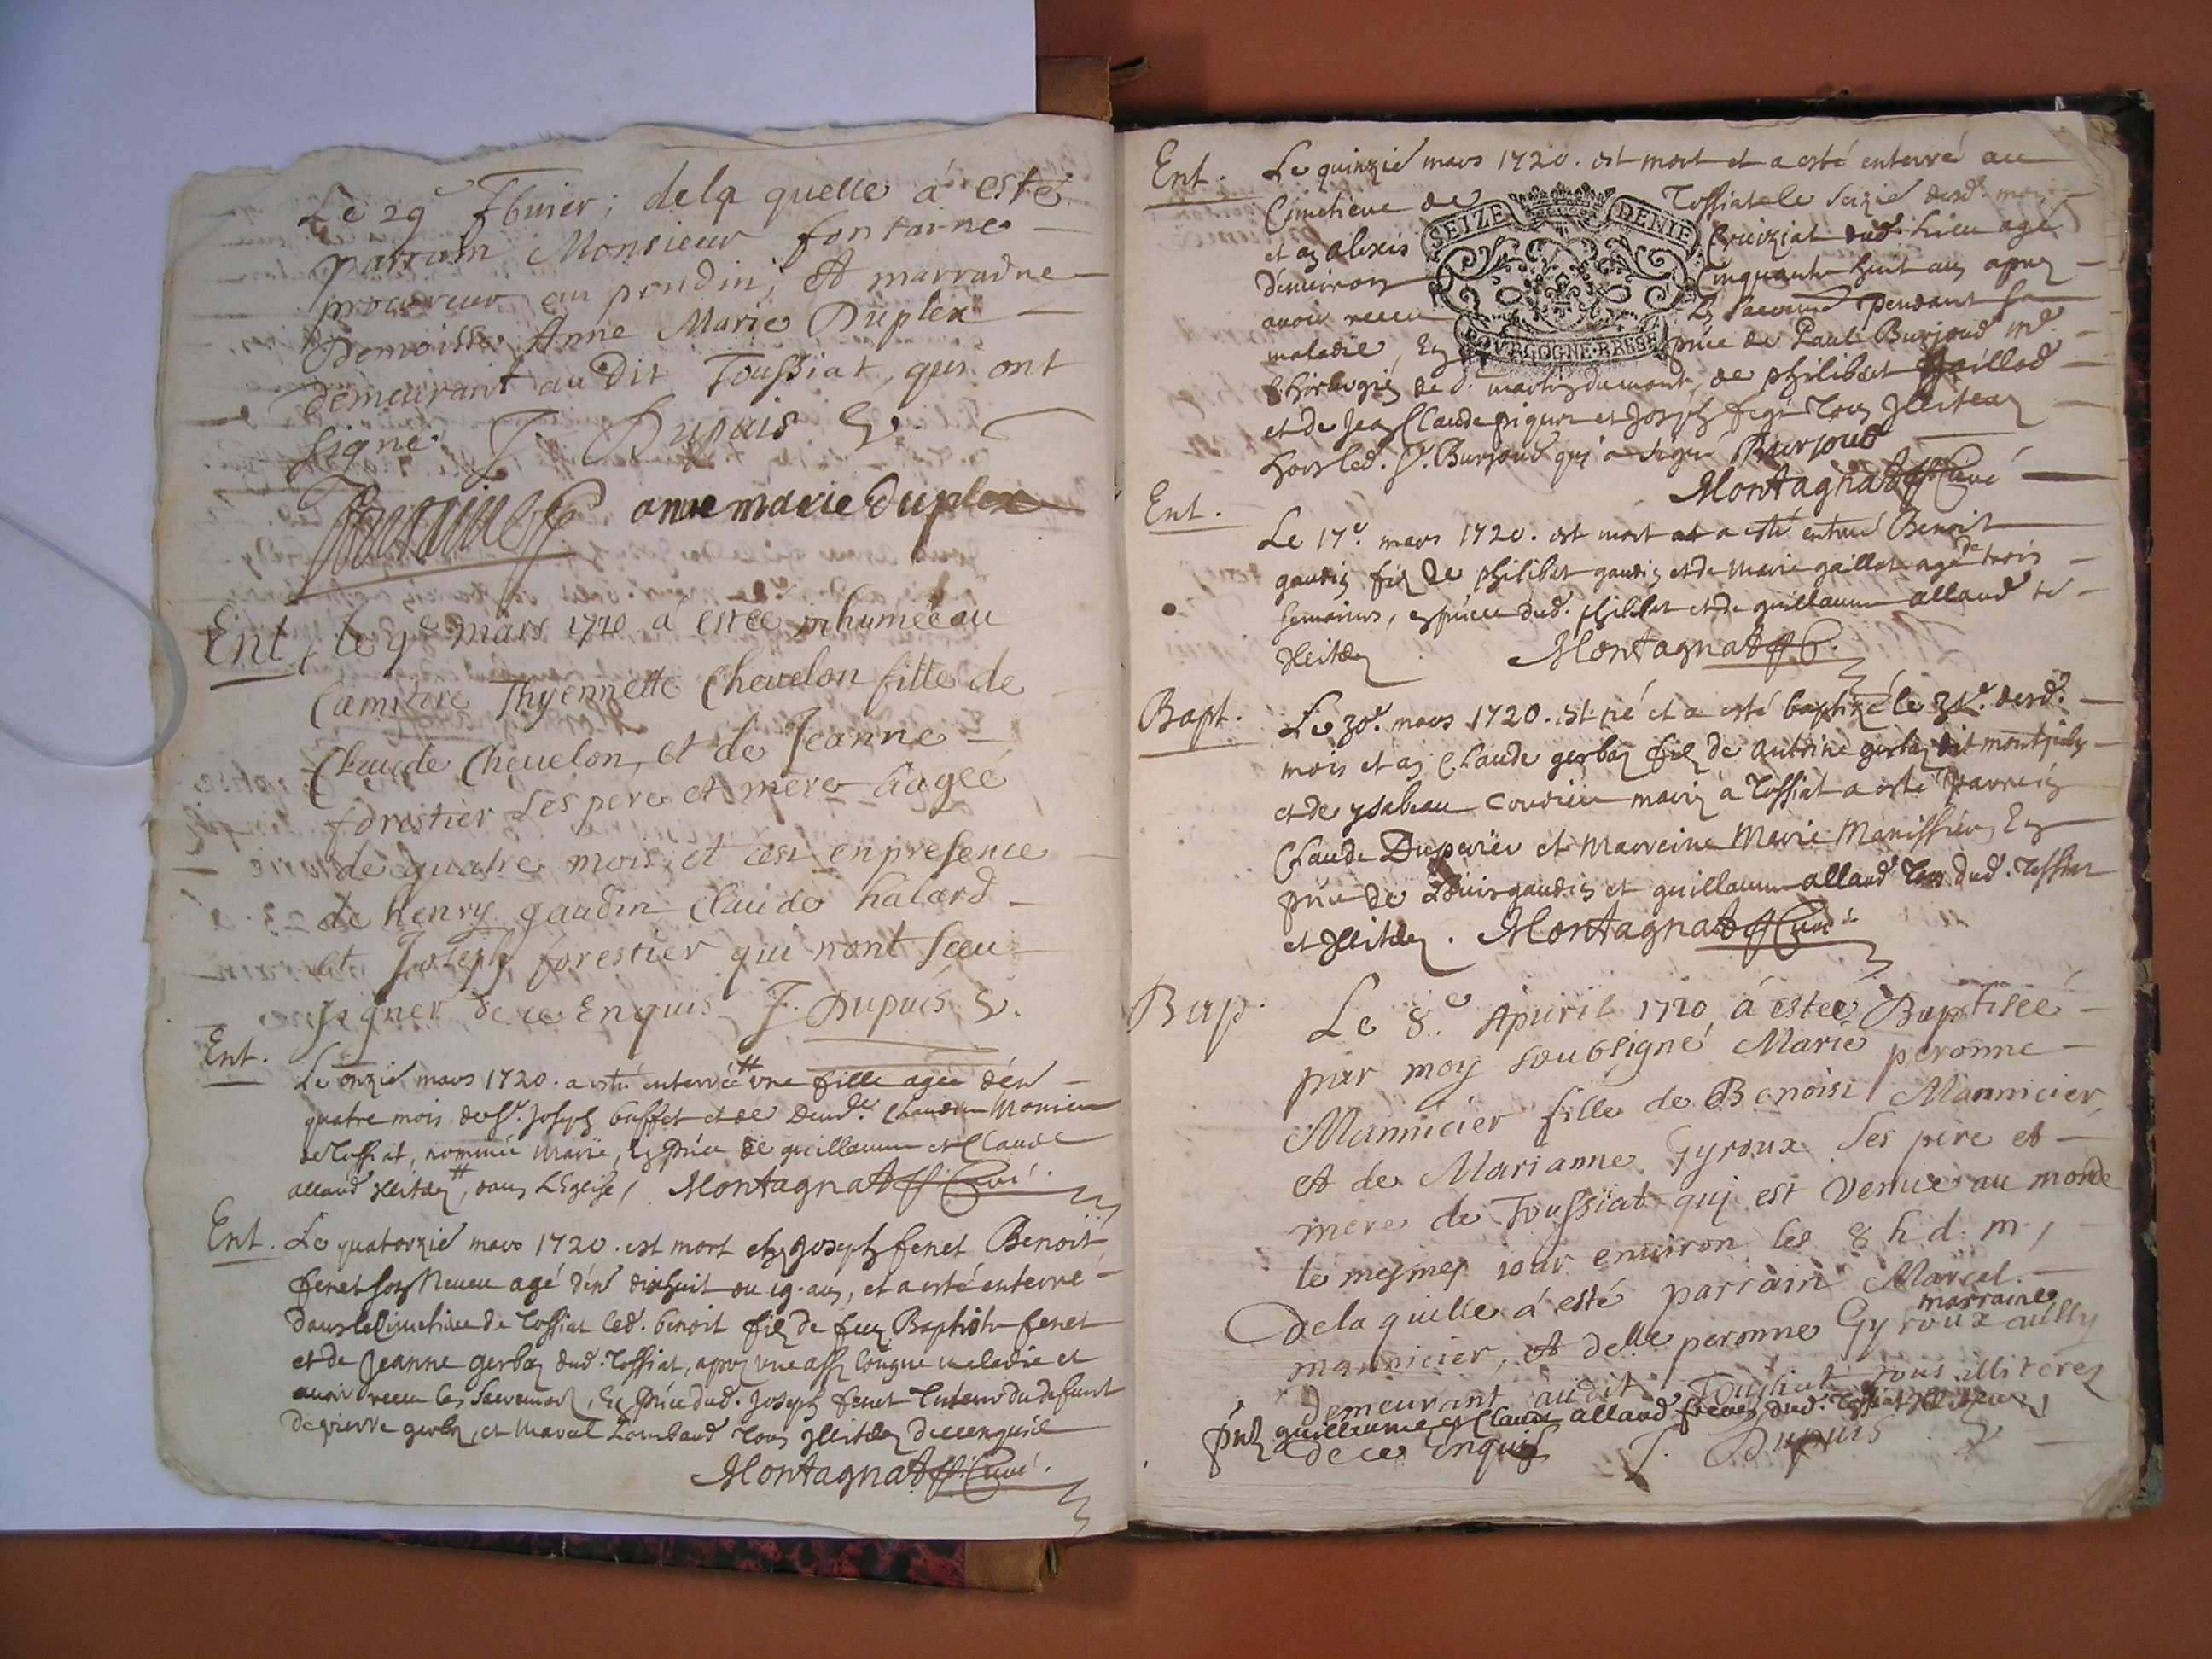 Le 29 Fbvrier ; de la quelle á esté
parrain Monsieur fontaine
procureur au pondin, et marraine
Demoisse Anne Marie Duplex
demeurant au dit Toussiat, qui ont
signé. J. Dupuis V.
anne marie duplex
Ent le 9e mars 1720 á estée inhumée au
Cæmitiere Thyennette Chevelon fille de
Claude Chevelon, et de Jeanne
forestier ses pere et mere aagée
de quatre mois, et cest en presence
de henry gaudin claude halard
et Joseph forestier qui nont sceu
signer de ce Enquis J. Dupuis V.
Ent.
Le onzie mars 1720. a esté enterrée # une fille agée d'en
quatre mois, de Sr. Joseph buffet et de
de Tossiat, nommée Marie, En pnce de guillaume et Claude
allard #, dans L'Eglise, Montagnat Curé.
Ent. Le quatorzie mars 1720. est mort chez Joseph fenet Benoit
fenet son Neveu agé d'en dixhuit ou 19. ans, et a esté enterré
dans le Cimetiere de Tossiat led. benoit fils de feu Baptiste fenet
et de Jeanne gerbaz dud. Tossiat, apres une assez longue maladie et
avoir receu les Sacremens, En pnce dud. Joseph fenet du defunt
de pierre gerbaz, et Marcel Lombard Tous de ce enquis
Montagnat Curé.
Ent. Le quinzie mars 1720. est mort et a esté enterré au
Cimetiere de Tossiat le seizie desd. mois
et an alexis Cruiziat dud. Lieu agé
d'environ Cinquante huit ans apres
avoir receu Les Sacremens pendant sa
maladie, En pnce de Paul Burjoud
de philibert
et de Jean Claude pigue et Joseph Tous
hors led. Sr. Burjoud qui a signé Burjoud
Montagnat Curé
SEIZE DENIE
BOURGOGNE BRESSE
Ent.
Le 17e. mars 1720. est mort et a esté enterré Benoit
gaudin fils de philibert gaudin et de Marie gaillot agé de trois
semaines, en pnce dud. philibert et de guillaume allard
Montagnat C.
Bapt. Le 30e. mars 1720. est né et a esté baptizé le 31e. desd.
mois et an Claude gerbaz fils de antoine gerbaz dit
et de ysabeau mariez à Tossiat a esté Parrein
Claude Duperier et Marreine Marie Manissier, En
pnce de Louis gaudin et guillaume allard Tous dud. Tossiat
et Montagnat Curé
Bap. Le 8e Apvril 1720 á estée Baptisée
par moy soubsigné Marie peronne
Mannicier fille de Benoist Mannicier,
et de Marianne Gyroux ses pere et
mere de Toussiat qui est venue au monde
le mesmes iour environ les 8 h d. m,
de la quelle á esté parrain Marcel
mannicier, et delle peronne Gyroux marraine aussy
demeurant audit Toussiat tous illiterez
pnts guillaume et Claude allard freres dud. Tossiat
de ce Enquis J. Dupuis V.